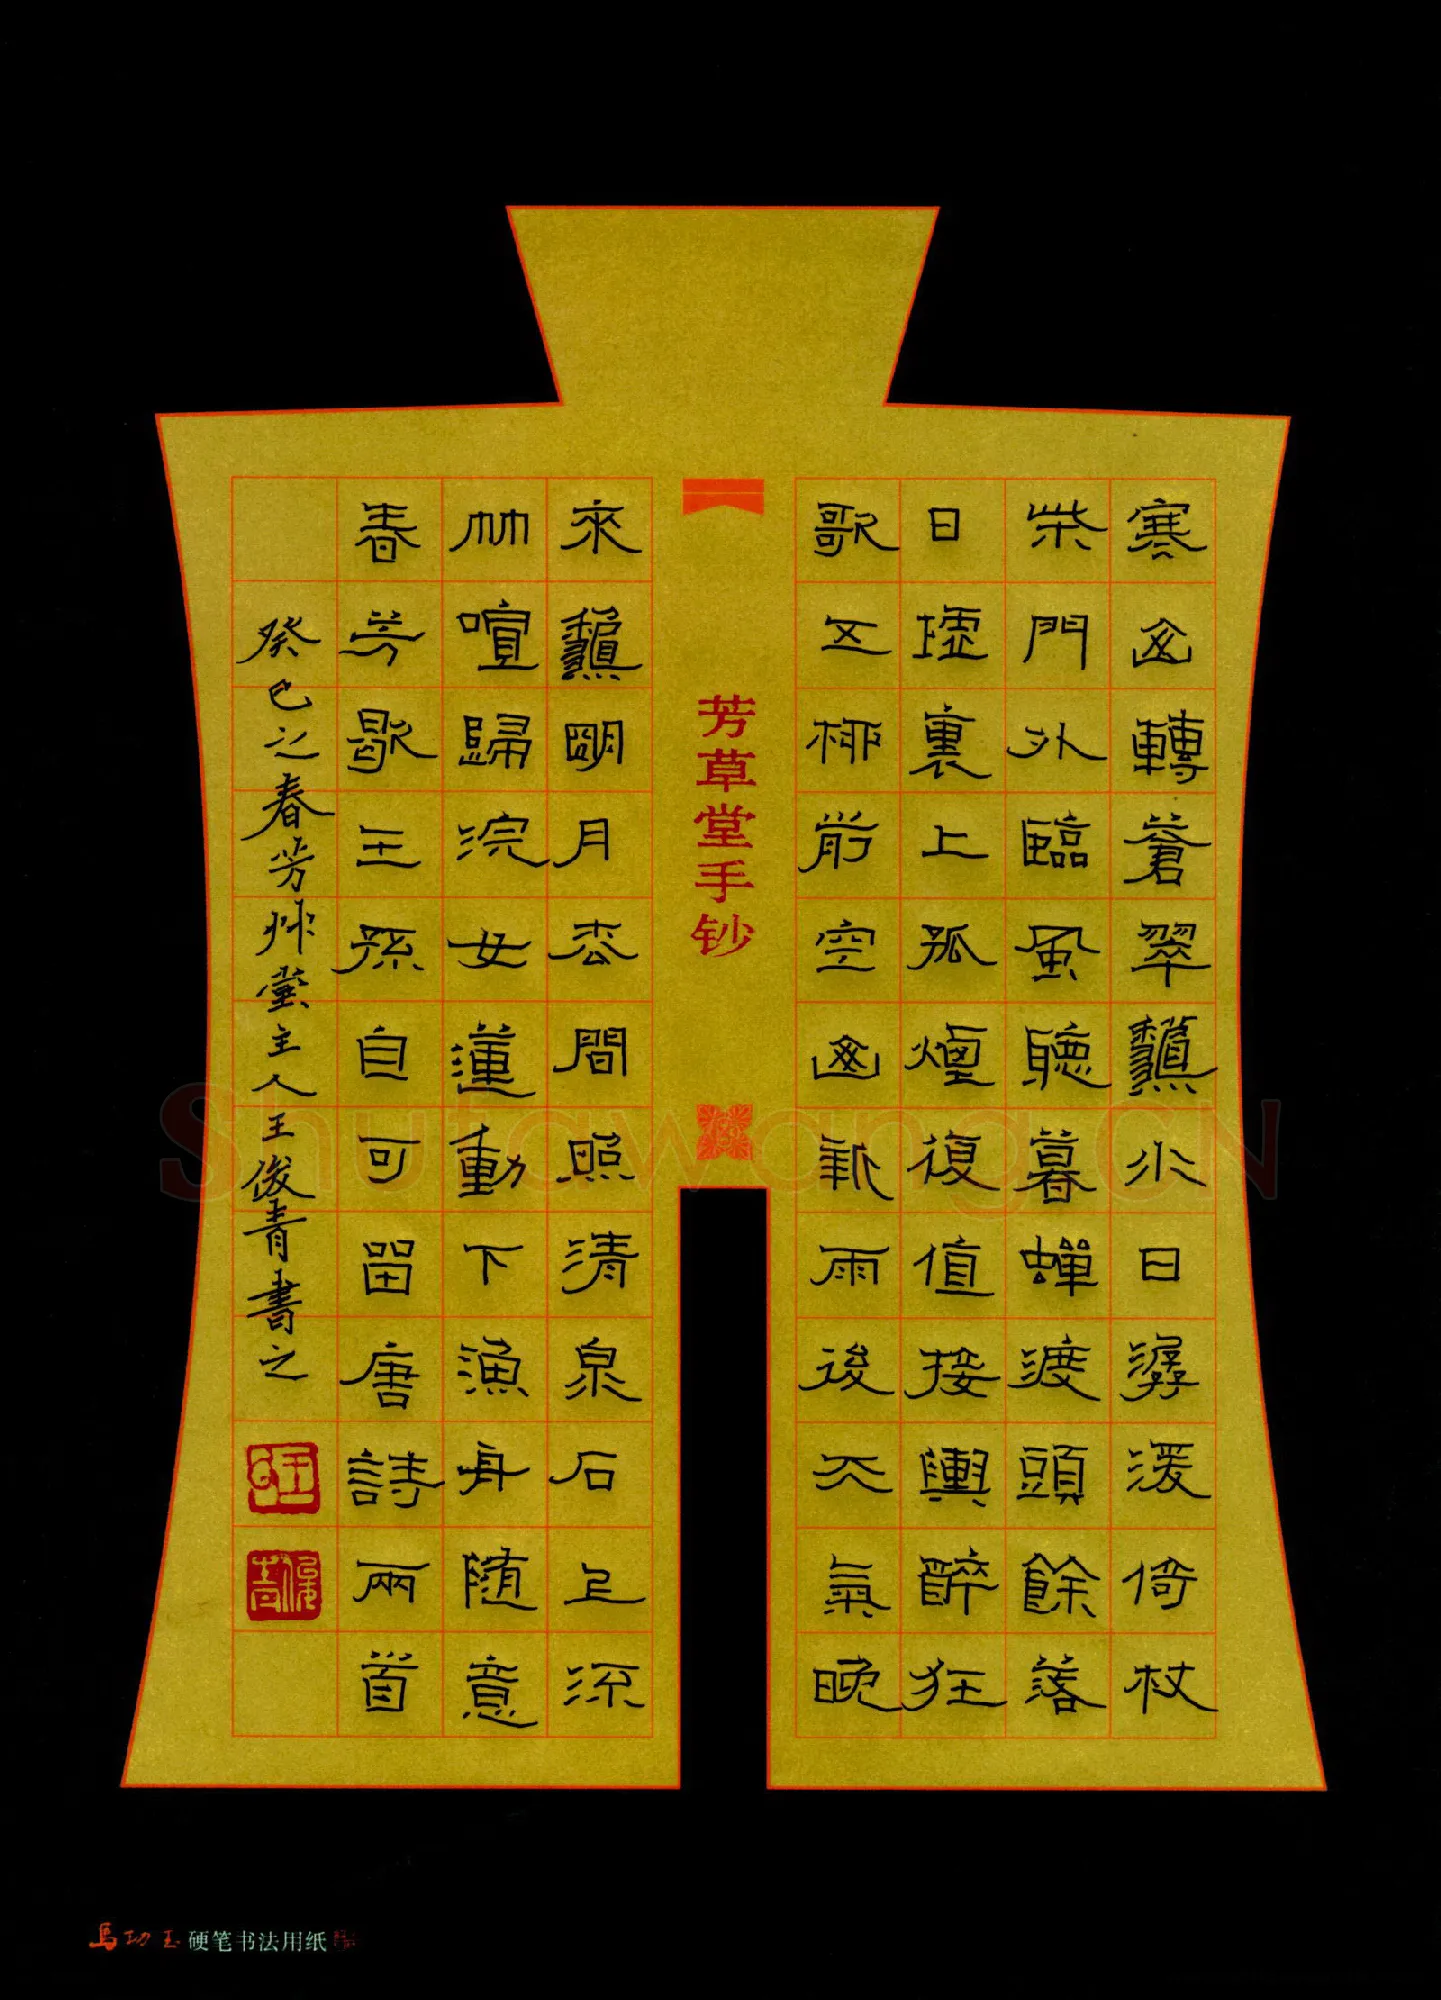 寒山轉蒼翠龝水日潺湲倚杖
柴門外臨風聽暮蟬渡頭餘落
日墟裏上孤煙復值接輿醉狂
歌五柳前空山新雨後天氣晚
芳草堂手钞
來龝明月松間照清泉石上流
竹喧歸浣女蓮動下漁舟隨意
春芳歇王孫自可留唐詩兩首
癸巳之春芳艸堂主人王俊青書之
俊青
Shufawang.CN
馬功玉硬笔书法用纸